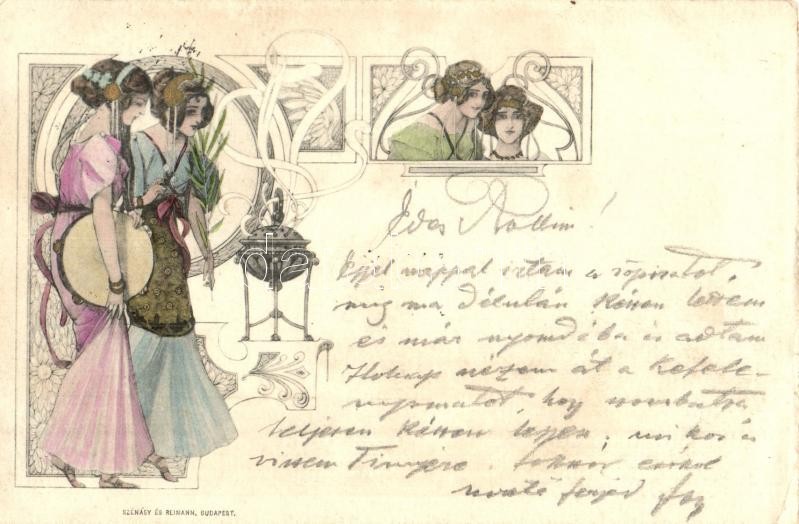 Édes
Éjjel nappal írtam a röpiratot,
míg ma délután készen lettem
és már nyomdába is adtam
Holnap nézem át a kefele-
nyomatot, hogy szombatra
teljesen készen legyen, mikor is
viszem . csókol
férjed
SZÉNÁSY ÉS REIMANN, BUDAPEST.